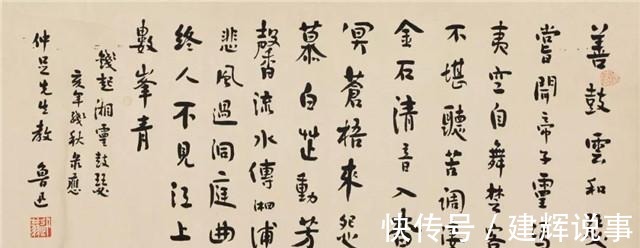 善鼓雲和
嘗聞帝子靈
夷空自舞楚客
不堪聽苦調淒
金石清音入杳
冥蒼梧來怨
慕白芷動芳
馨流水傳湘浦
悲風過洞庭曲
終人不見江上
數峯青
錢起湘靈鼓瑟
亥年殘秋录應
仲足先生教 魯迅
快传号 / 建辉说事